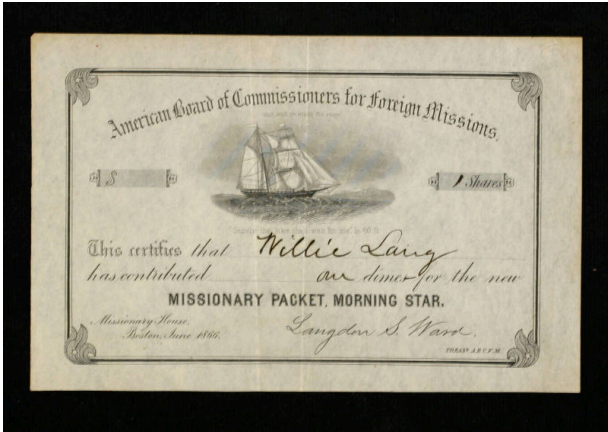 American Board of Commissioners for Foreign Missions.
$
1 Shares
This certifies that Willie Lang
has contributed one dimes for the new
MISSIONARY PACKET, MORNING STAR.
Missionary House,
Boston, June 1866.
Langdon S. Ward.
TREASR. A.B.C.F.M.